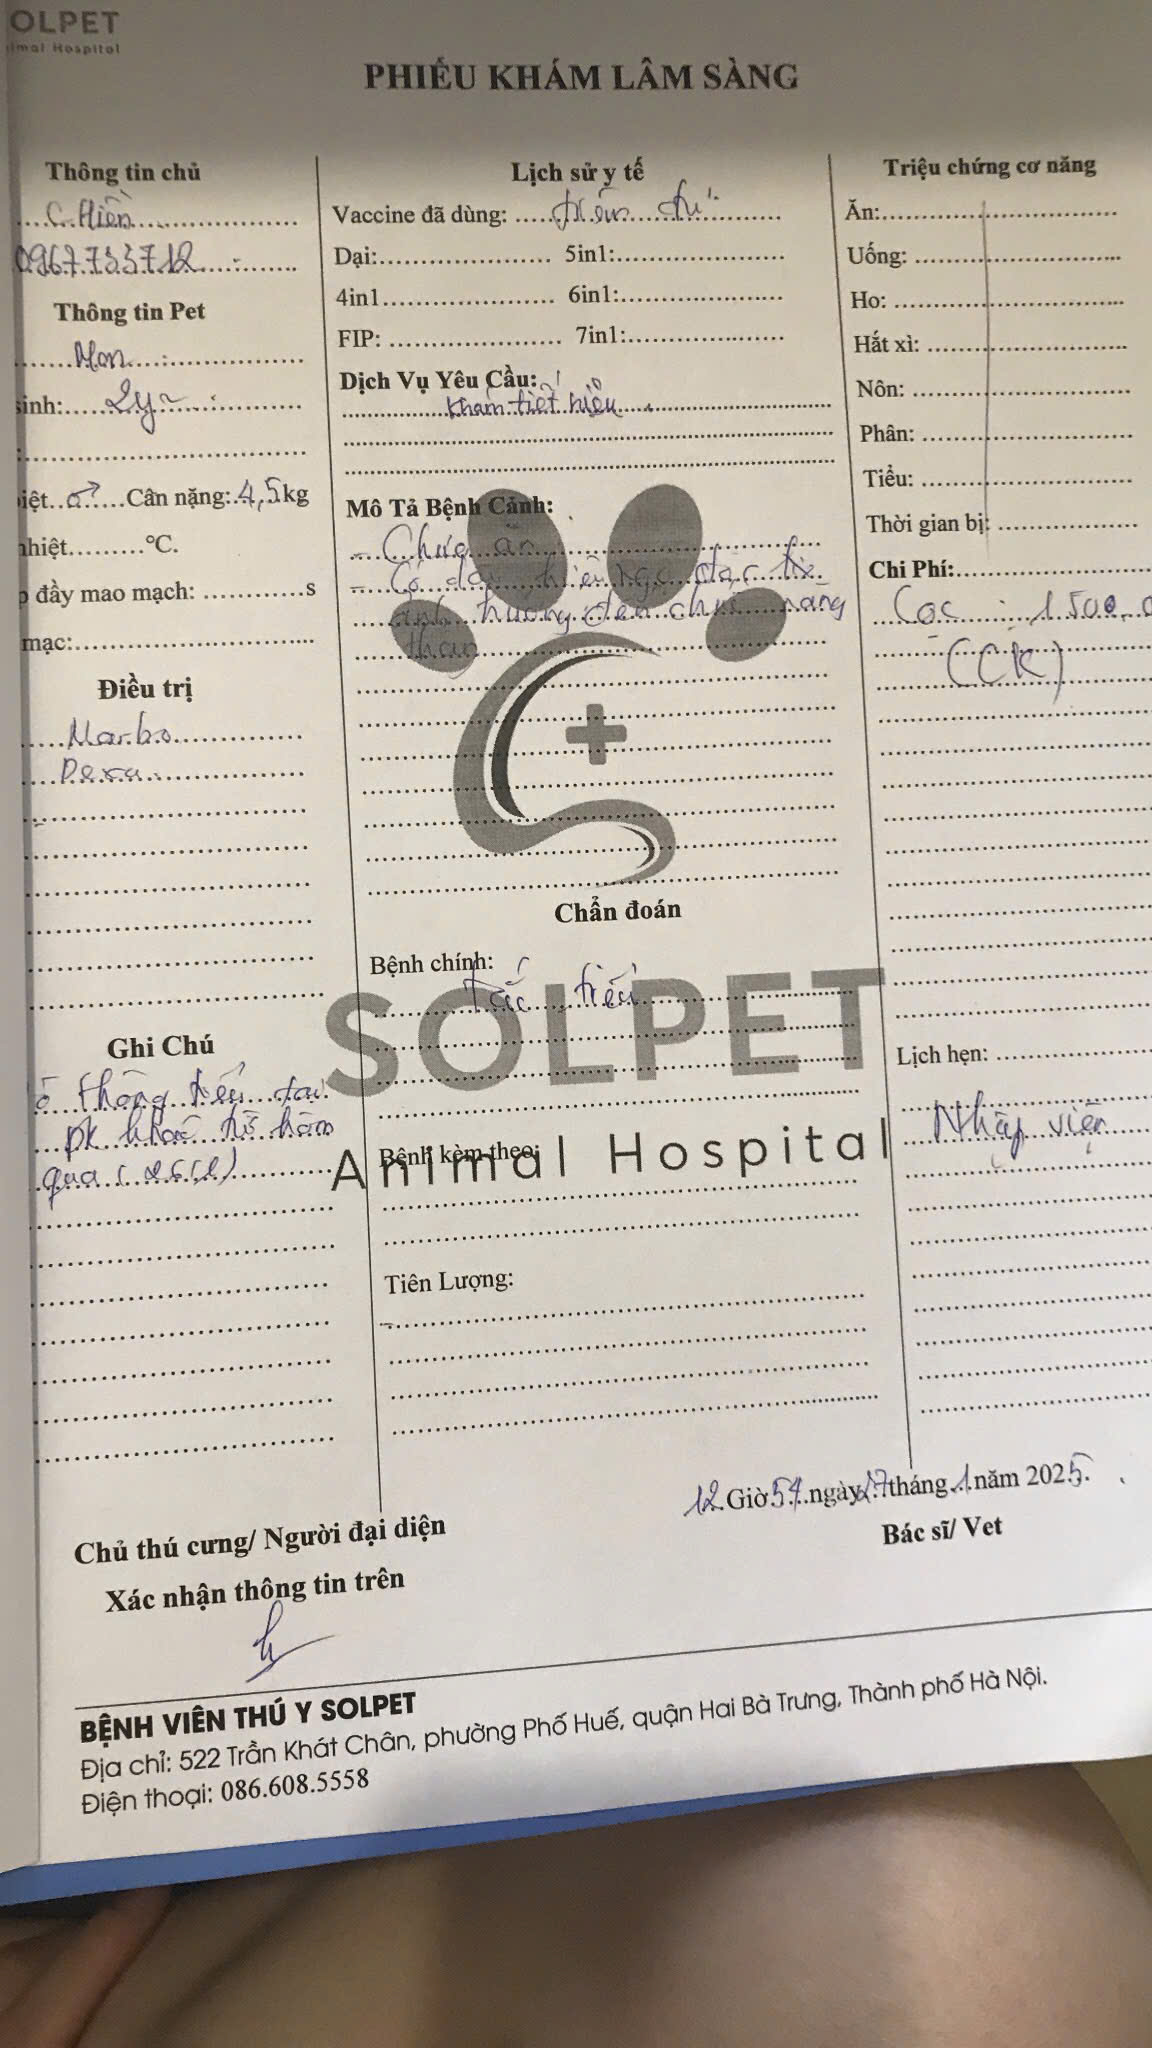 OLPET
imal Hospital
PHIẾU KHÁM LÂM SÀNG
Thông tin chủ
C. Hiền
0967733712
Thông tin Pet
Mon
sinh: 2y
iệt ♂ Cân nặng: 4,5kg
nhiệt.........°C.
p đầy mao mạch: ............s
mạc:
Điều trị
Marbo
Dexa
Ghi Chú
thông tiểu tại
pk khác từ hôm
qua (26/1)
Lịch sử y tế
Vaccine đã dùng: tiêm đủ
Dại: 5in1:
4in1 6in1:
FIP: 7in1:
Dịch Vụ Yêu Cầu:
Khám tiết niệu
Mô Tả Bệnh Cảnh:
- Chưa ăn
- Có dấu hiệu ngộ độc
ảnh hưởng đến chức năng
thận
Chẩn đoán
Bệnh chính:
Tắc tiểu
Bệnh kèm theo:
Tiên Lượng:
Triệu chứng cơ năng
Ăn:
Uống:
Ho:
Hắt xì:
Nôn:
Phân:
Tiểu:
Thời gian bị:
Chi Phí:
Cọc : 1.500.0
(CK)
Lịch hẹn:
Nhập viện
SOLPET
Animal Hospital
12 Giờ 54 ngày 27 tháng 1 năm 2025.
Chủ thú cưng/ Người đại diện
Xác nhận thông tin trên
Bác sĩ/ Vet
BỆNH VIÊN THÚ Y SOLPET
Địa chỉ: 522 Trần Khát Chân, phường Phố Huế, quận Hai Bà Trưng, Thành phố Hà Nội.
Điện thoại: 086.608.5558